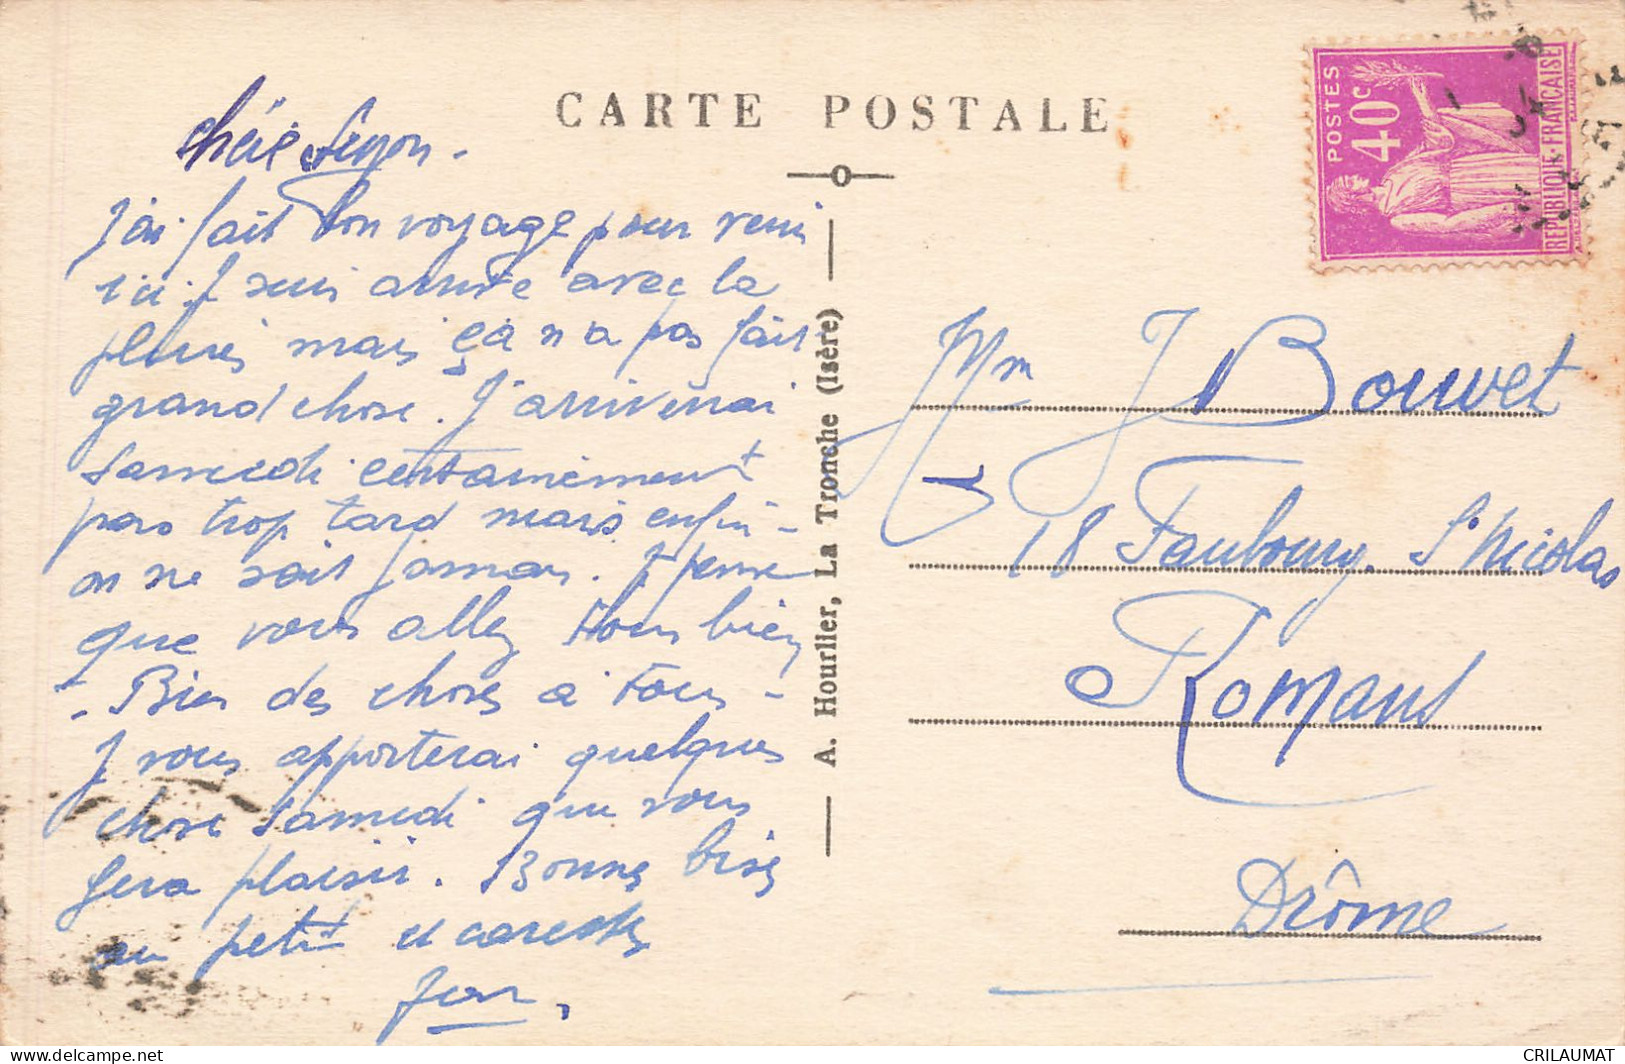 CARTE POSTALE
POSTES
40c
REPUBLIQUE FRANÇAISE
chérie
J'ai fait bon voyage pour venir
ici. J suis arrivée avec la
pluie mais ça n a pas fait
grand chose. J'arriverai
Samedi certainement
pas trop tard mais enfin -
on ne sait jamais. J pense
que vous allez tous bien
- Bien des choses à tous -
J vous apporterai quelques
chose Samedi que vous
fera plaisir. Bonnes bises
au petit et caresses
Jean
A. Hourlier, La Tronche (Isère)
Mm J Bouvet
18 Faubourg St Nicolas
Romans
Drôme
www.delcampe.net
CRILAUMAT